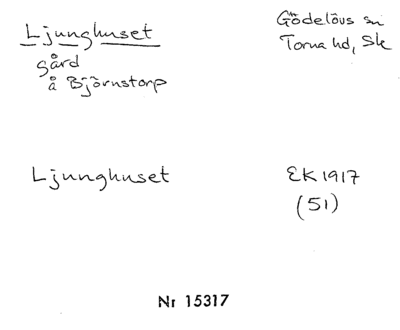 Ljunghuset
gård
å Björnstorp
Gödelövs sn
Torna hd, Sk
Ljunghuset
EK 1917
(51)
Nr 15317